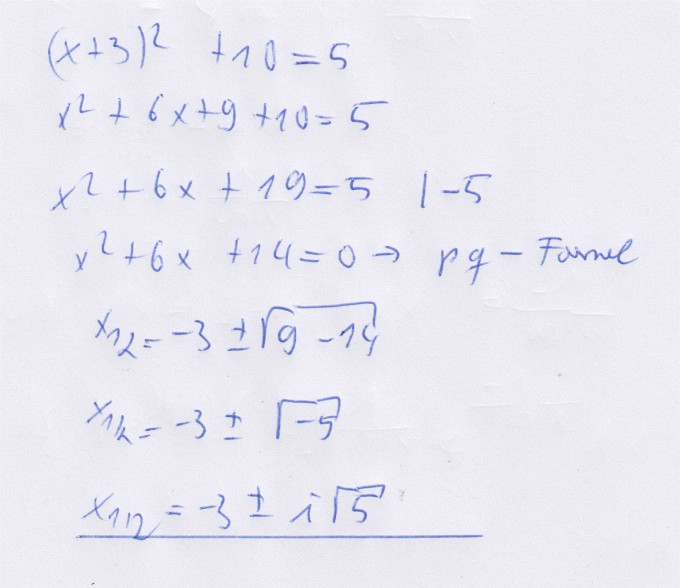 (x+3)² +10=5
x² + 6x+9 +10=5
x² +6x + 19=5 |-5
x²+6x +14=0 → pq - Formel
x₁,₂= -3 ±√(9 -14)
x₁,₂= -3 ± √(-5)
x₁,₂ = -3 ± i√5